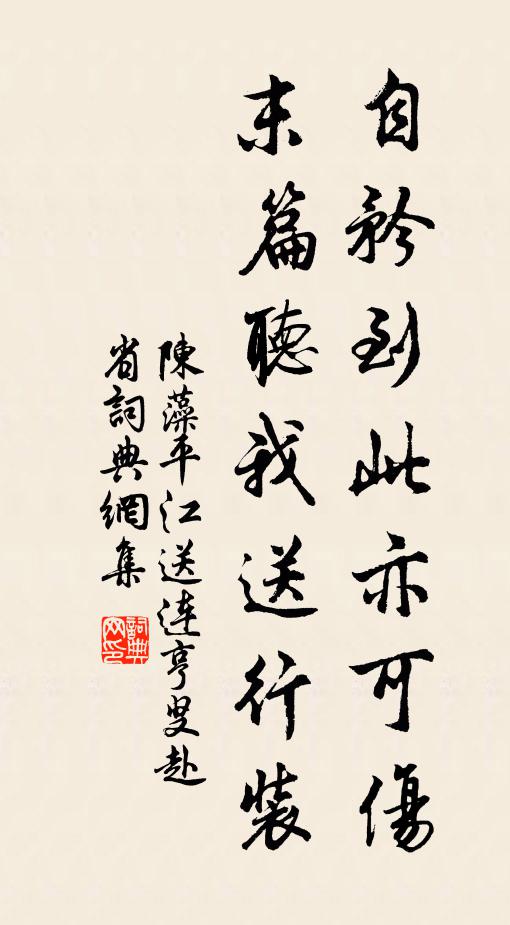 自矜到此亦可傷
末篇聽我送行裝
陳藻平江送連亨叟赴
省詞典網集
詞典
网印